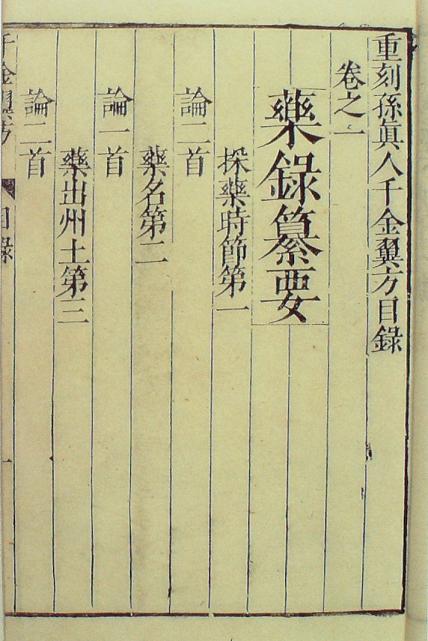 重刻孫真人千金翼方目錄
卷之一
藥錄纂要
採藥時節第一
論二首
藥名第二
論一首
藥出州土第三
論二首
千金翼方 目錄 一